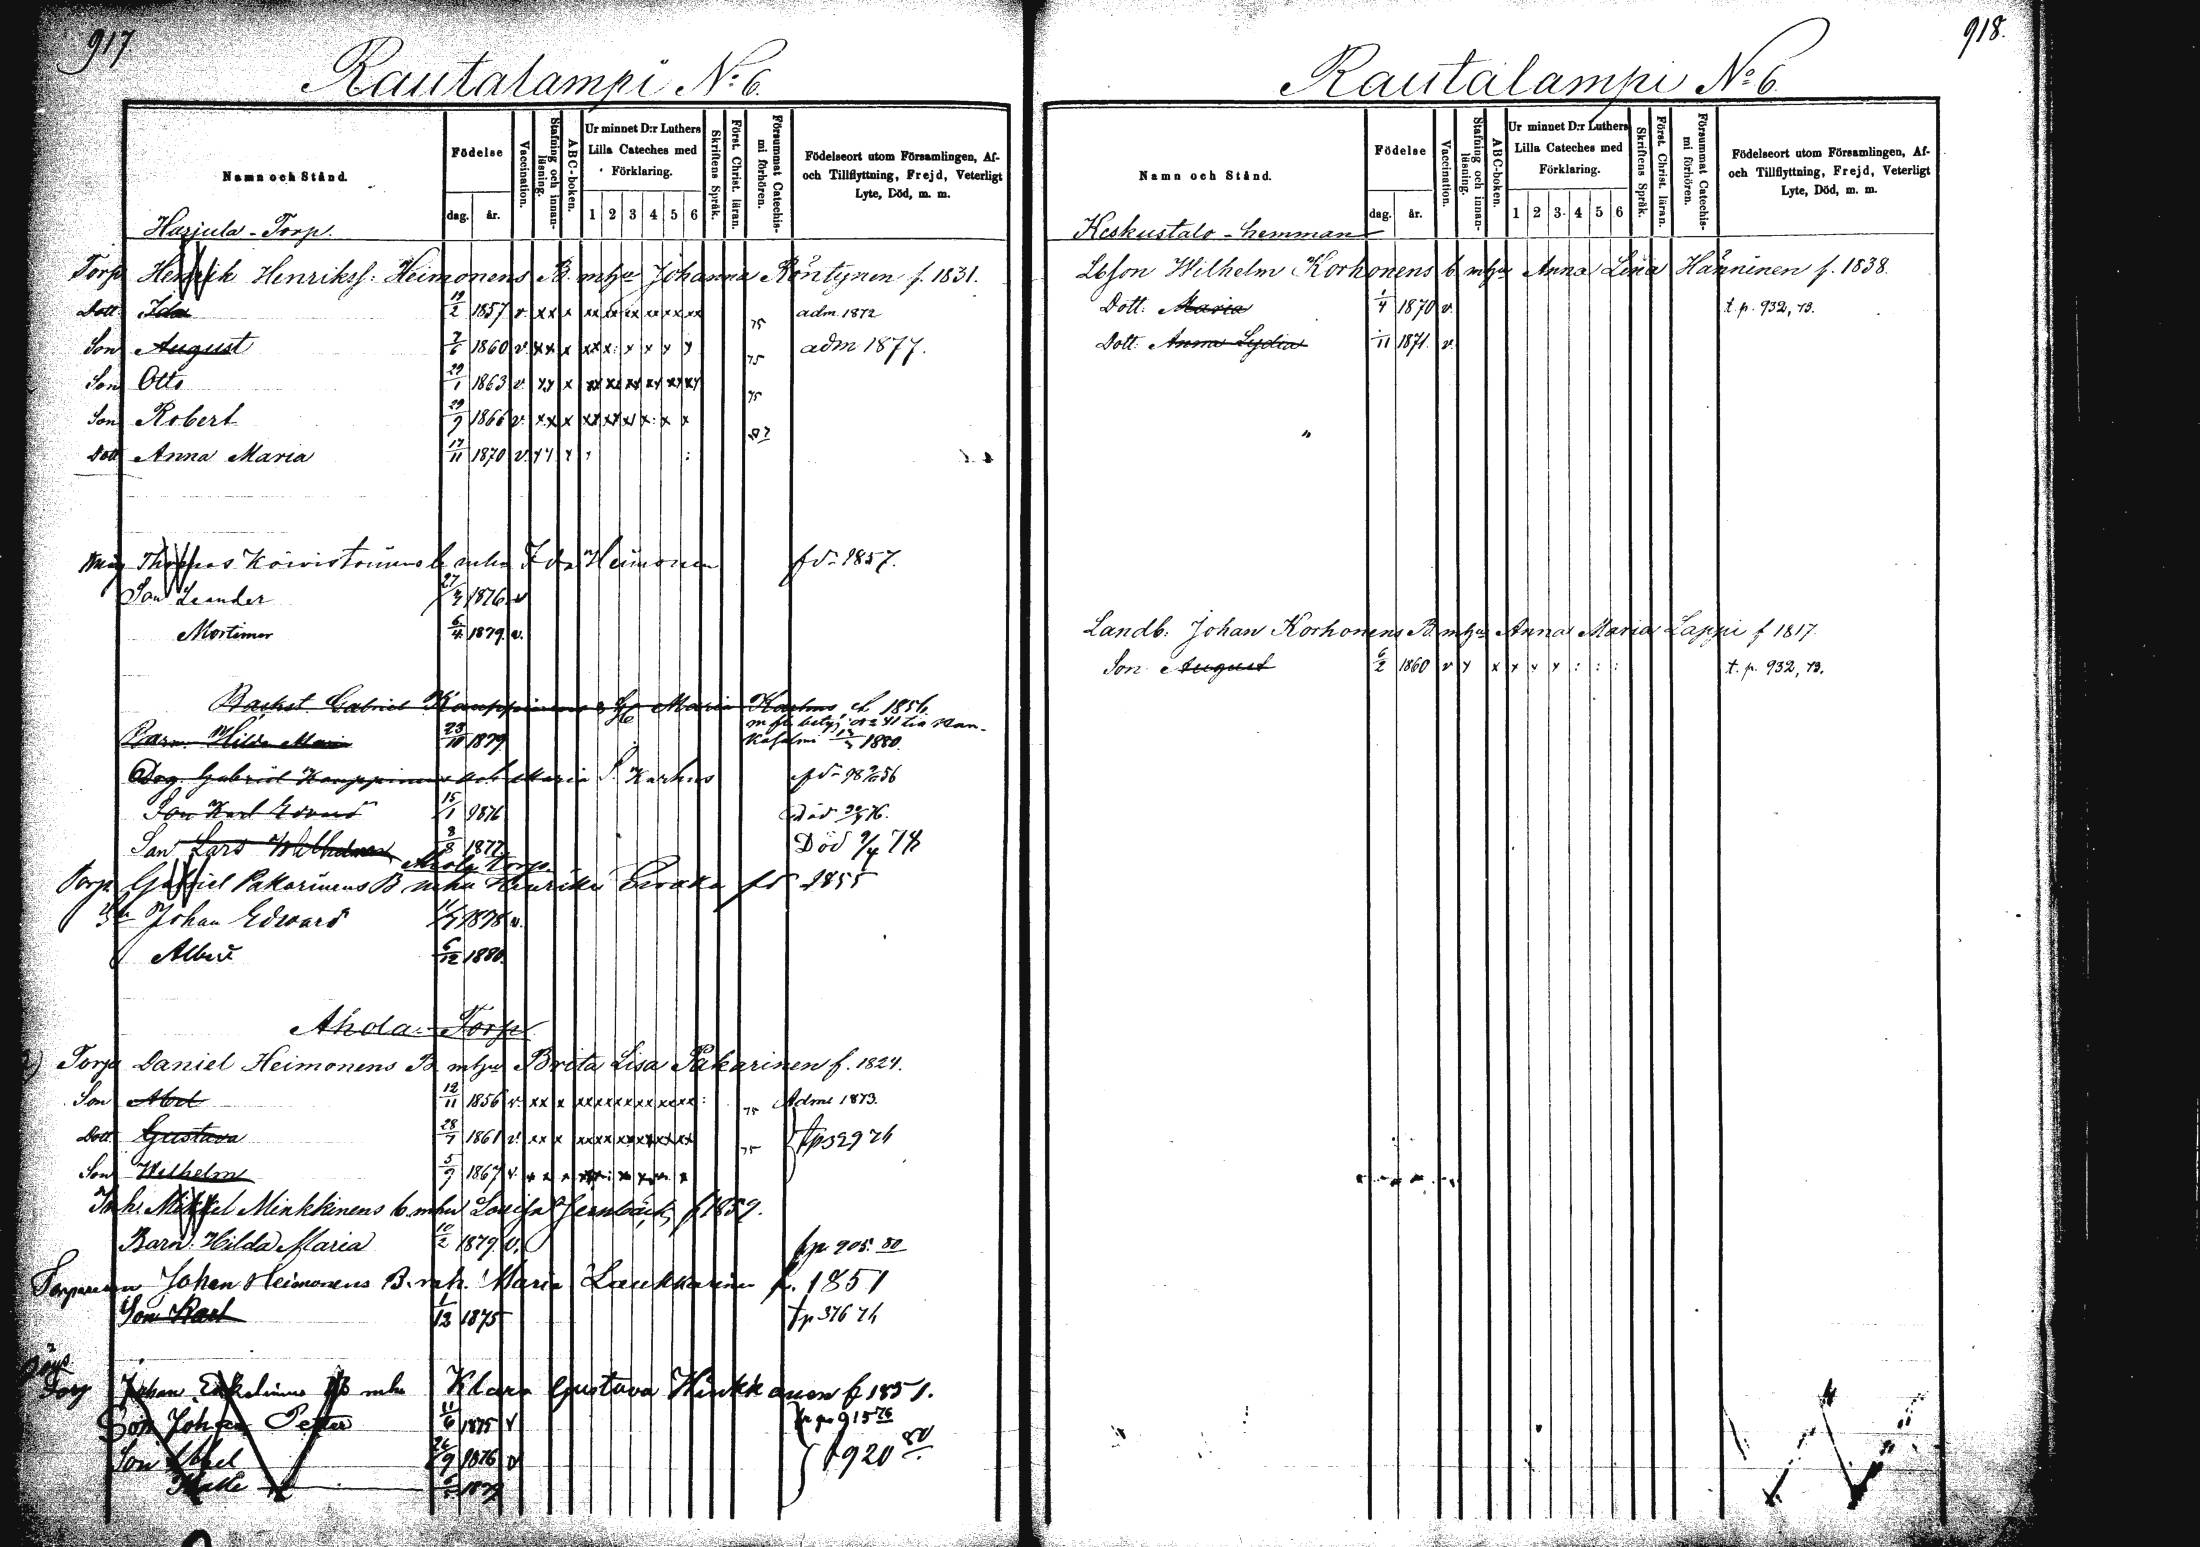 917.
Rautalampi No: 6.
Namn och Stånd.
Födelse
dag. år.
Vaccination.
Stafning och innanläsning.
ABC-boken.
Ur minnet D:r Luthers Lilla Cateches med Förklaring.
1 2 3 4 5 6
Skriftens Språk.
Först. Christ. läran.
Försummat Catechismi förhören.
Födelseort utom Församlingen, Af- och Tillflyttning, Frejd, Veterligt Lyte, Död, m. m.
Harjula-Torp.
Torp Henrik Henrikss: Heimonens B. mhu Johanna Röntynen f. 1831.
Dott. Ida 19/2 1857 v. xx x xx xx xx xx xx xx 75 adm. 1872
Son August 7/6 1860 v xx x xx x: x x x x 75 adm 1877.
Son Otto 29/1 1863 v. xx x xx xx xx xx xx xx 75
Son Robert 29/9 1866 v. xx x xx xx xx x: x x
Dott Anna Maria 17/11 1870 v. xx x
Thomas Koivistoinens b mhu Ida Heimonen fd 1857.
Son Leander 27/7 1876 v
Mortimer 6/4 1879 v.
Backst. Gabriel Kauppinens & H: Maria Karhus f. 1856
Barn. Hilda Maria 23/10 1879
1880.
Gabriel Kauppinens och Maria S. Karhus
Son Karl Edvard 15/1 1876 Död
Son Lars Wilhelm 8/8 1877 Död 9/4 78
Ahola Torp
Torp Gabriel Pakarinens B mhu Henrika fd 1855
Johan Edward 11/7 1878 v.
Albert 6/12 1880.
Ahola-Torp
Torp Daniel Heimonens B. mhu Brita Lisa Pakarinen f. 1824.
Son Abel 12/11 1856 v. xx x xx xx xx xx xx xx : 75 Adm 1873.
Dott Gustava 28/7 1861 v. xx x xx xx xx xx xx xx 75 tp 529 76
Son Wilhelm 5/9 1867 v. x x x
Inh: Mikkel Minkkinens b. mhu Lovisa Jernbäck f 1859.
Barn: Hilda Maria 10/2 1879 v. fp 905. 80
Torparen Johan Heimonens B. mh. Maria Laukkarinen f. 1851
Son Karl 1/12 1875 tp 376 76
Torp Johan B mhu Klara Gustava Hinkkanen f 1851.
Son Johan Petter 11/6 1875 v fr p 915 76
Son Abel 26/9 1876 v f 920 80
1879
918.
Rautalampi No: 6
Namn och Stånd.
Födelse
dag. år.
Vaccination.
Stafning och innanläsning.
ABC-boken.
Ur minnet D:r Luthers Lilla Cateches med Förklaring.
1 2 3 4 5 6
Skriftens Språk.
Först. Christ. läran.
Försummat Catechismi förhören.
Födelseort utom Församlingen, Af- och Tillflyttning, Frejd, Veterligt Lyte, Död, m. m.
Keskustalo-hemman
Lbson Wilhelm Korhonens b. mhu Anna Lisa Hänninen f. 1838.
Dott: Maria 1/4 1870 v. t. p. 932, 73.
Dott: Anna Lydia 1/11 1871. v.
Landb: Johan Korhonens B mhu Anna Maria Lappi f 1817.
Son August 6/2 1860 v x x x x x : : : t. p. 932, 73.